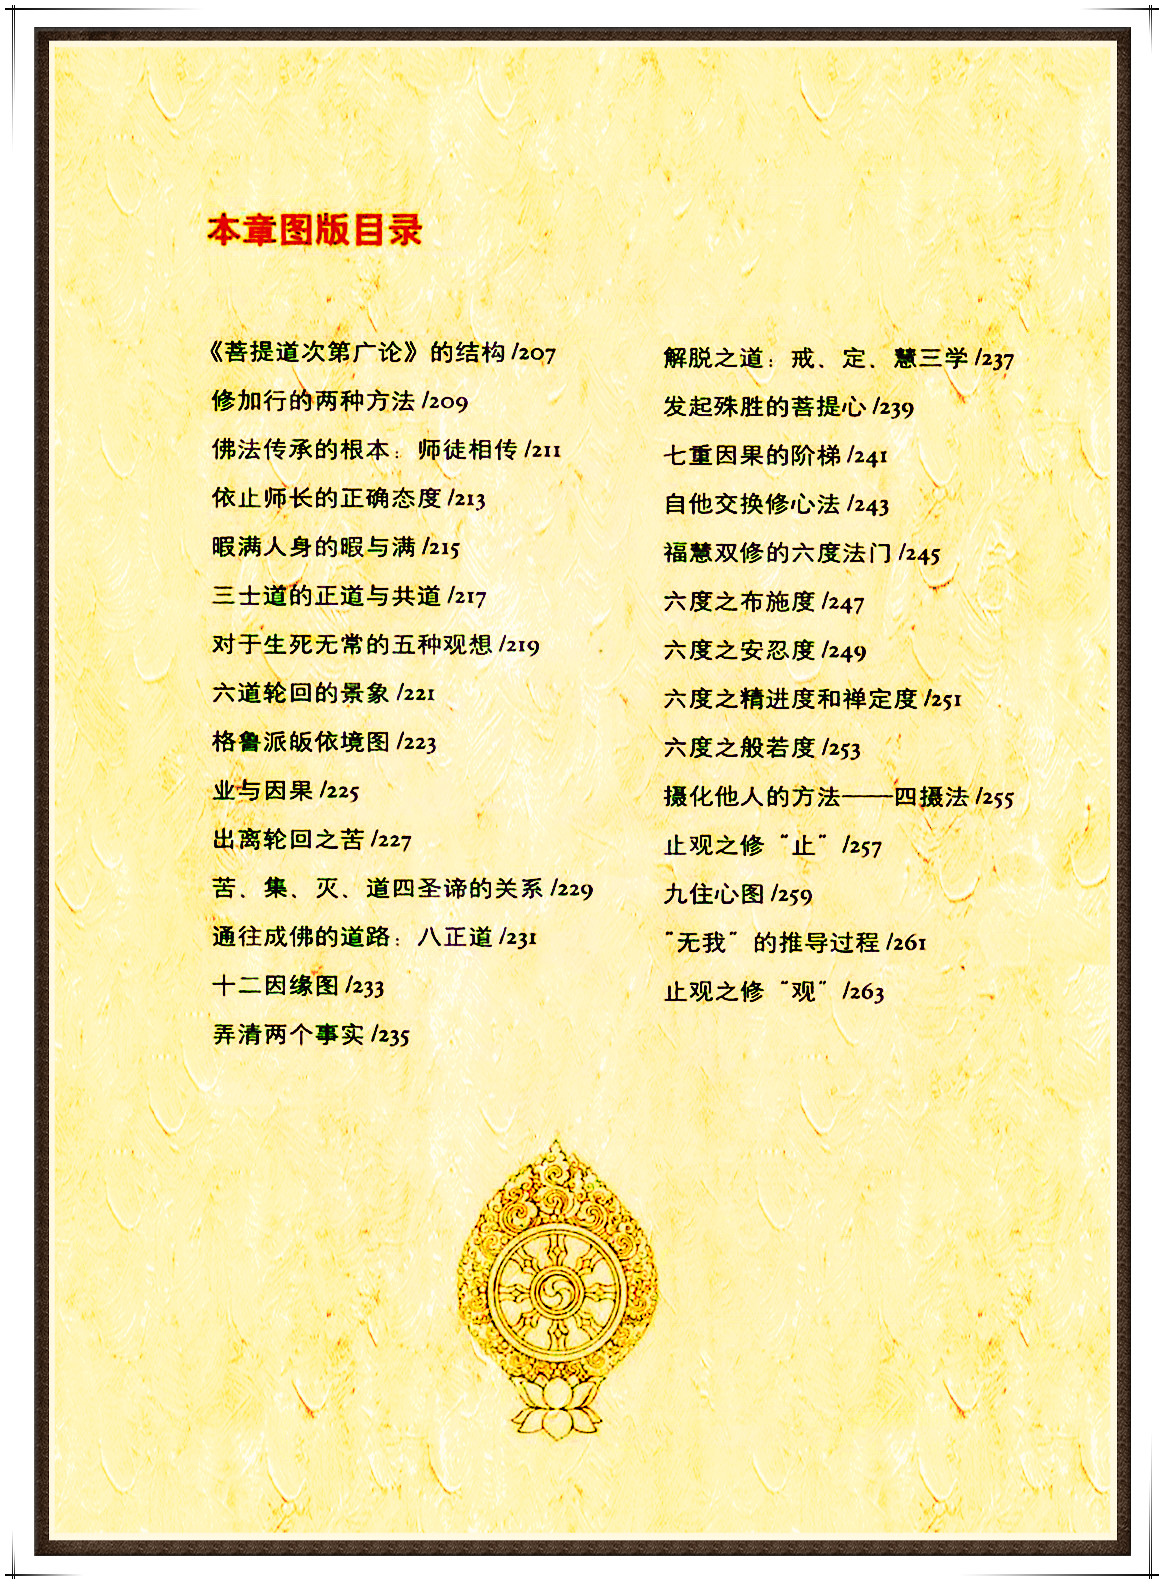 本章图版目录
《菩提道次第广论》的结构 /207
修加行的两种方法 /209
佛法传承的根本：师徒相传 /211
依止师长的正确态度 /213
暇满人身的暇与满 /215
三士道的正道与共道 /217
对于生死无常的五种观想 /219
六道轮回的景象 /221
格鲁派皈依境图 /223
业与因果 /225
出离轮回之苦 /227
苦、集、灭、道四圣谛的关系 /229
通往成佛的道路：八正道 /231
十二因缘图 /233
弄清两个事实 /235
解脱之道：戒、定、慧三学 /237
发起殊胜的菩提心 /239
七重因果的阶梯 /241
自他交换修心法 /243
福慧双修的六度法门 /245
六度之布施度 /247
六度之安忍度 /249
六度之精进度和禅定度 /251
六度之般若度 /253
摄化他人的方法——四摄法 /255
止观之修“止” /257
九住心图 /259
“无我”的推导过程 /261
止观之修“观” /263